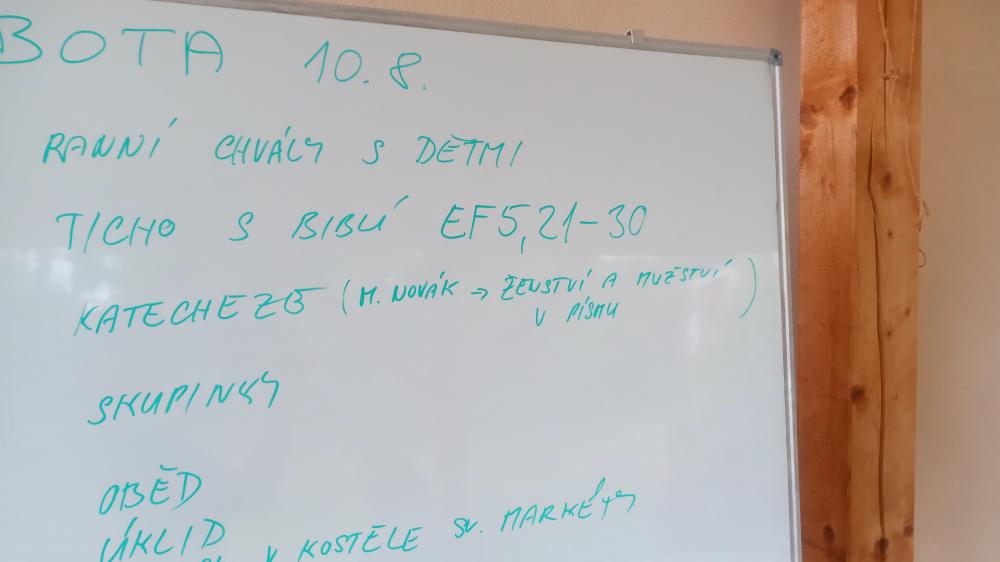 BOTA 10.8.
RANNÍ CHVÁLY S DĚTMI
TICHO S BIBLÍ EF5,21-30
KATECHEZE (M. NOVÁK → ŽENSTVÍ A MUŽSTVÍ
V PÍSMU)
SKUPINKY
OBĚD
ÚKLID
V KOSTELE SV. MARKÉTY